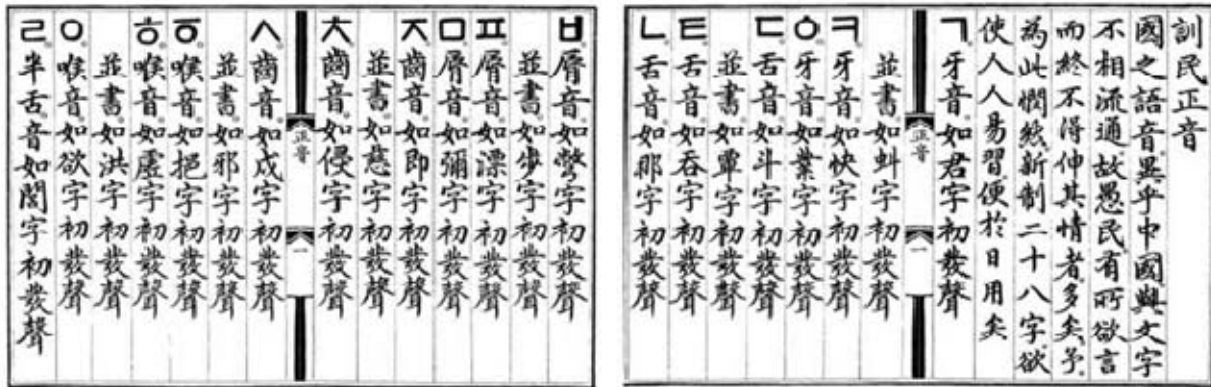 訓民正音
國之語音異乎中國與文字
不相流通故愚民有所欲言
而終不得伸其情者多矣予
為此憫然新制二十八字欲
使人人易習便於日用矣
ㄱ牙音如君字初發聲
正音 一
並書如虯字初發聲
ㅋ牙音如快字初發聲
ㆁ牙音如業字初發聲
ㄷ舌音如斗字初發聲
並書如覃字初發聲
ㅌ舌音如呑字初發聲
ㄴ舌音如那字初發聲
ㅂ脣音如彆字初發聲
並書如步字初發聲
ㅍ脣音如漂字初發聲
ㅁ脣音如彌字初發聲
ㅈ齒音如即字初發聲
並書如慈字初發聲
ㅊ齒音如侵字初發聲
正音 一
ㅅ齒音如戌字初發聲
並書如邪字初發聲
ㆆ喉音如挹字初發聲
ㅎ喉音如虛字初發聲
並書如洪字初發聲
ㅇ喉音如欲字初發聲
ㄹ半舌音如閭字初發聲